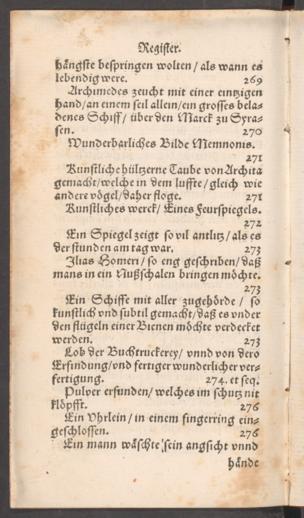 Register.
hängste bespringen wolten / als wann es
lebendig were. 269
Archimedes zeucht mit einer eintzigen
hand / an einem seil allein / ein grosses bela-
denes Schiff / über den Marck zu Syra-
sen. 270
Wunderbarliches Bilde Memnonis.
271
Kunstliche hültzerne Taube von Archita
gemacht / welche in dem luffte / gleich wie
andere vögel / daher floge. 271
Kunstliches werck / Eines Feurspiegels.
272
Ein Spiegel zeigt so vil antlitz / als es
der stunden am tag war. 273
Ilias Homeri / so eng geschriben / daß
mans in ein Nußschalen bringen möchte.
273
Ein Schiffe mit aller zugehörde / so
kunstlich vnd subtil gemacht / daß es vnder
den flügeln einer Bienen möchte verdecket
werden. 273
Lob der Buchtruckerey / vnnd von dero
Erfindung / vnd fertiger wunderlicher ver-
fertigung. 274. et seq.
Pulver erfunden / welches im schutz nit
klöpfft. 276
Ein Vhrlein / in einem fingerring ein-
geschlossen. 276
Ein mann wäschte sein angsicht vnnd
hände